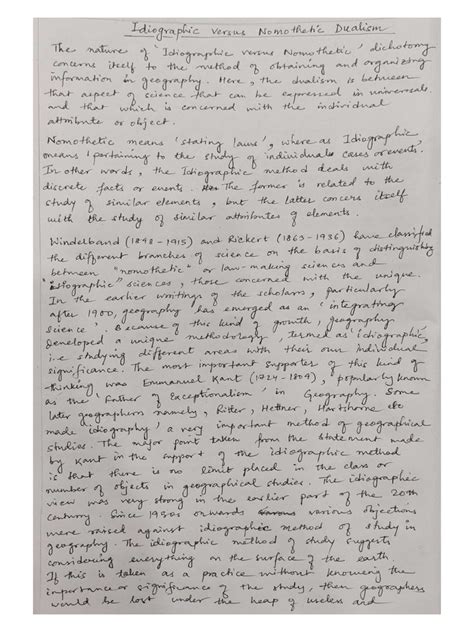 Idiographic versus Nomothetic Dualism
The nature of 'Idiographic versus Nomothetic' dichotomy
concerns itself to the method of obtaining and organizing
information in geography. Here, the dualism is between
that aspect of science that can be expressed in universals.
and that which is concerned with the individual
attribute or object.
Nomothetic means 'stating laws', where as Idiographic
means 'pertaining to the study of individuals cases or events.
In other words, the Idiographic method deals with
discrete facts or events. The former is related to the
study of similar elements, but the latter concers itself
with the study of similar attributes of elements.
Windelband (1848 - 1915) and Rickert (1863 - 1936) have classified
the different branches of science on the basis of distinguishing
between "nomothetic" or law-making sciences and
sciences, those concerned with the unique.
In the earlier writings of the scholars, particularly
after 1900, geography has emerged as an 'integrating
science'. Because of this kind of growth, geography
developed a unique methodology, termed as idiographic,
i.e studying different areas with their own individual
significance. The most important supporter of this kind of
thinking was Emmanuel Kant (1724 - 1804), popularly known
as the 'Father of Exceptionalism' in Geography. Some
later geographers namely, Ritter, Hettner, Hartshorne etc
made idiography' a very important method of geographical
studies. The major point taken from the statement made
by Kant in the support of the idiographic method
is that there is no limit placed in the class or
number of objects in geographical studies. The idiographic
view was very strong in the earlier part of the 20th
century. Since 1950s onwards various objections
were raised against idiographic method of study in
geography. The idiographic method of study suggests
considering everything on the surface of the earth.
If this is taken as a practice without knowing the
importance or significance of the study, then geographers
would be lost under the heap of useless and